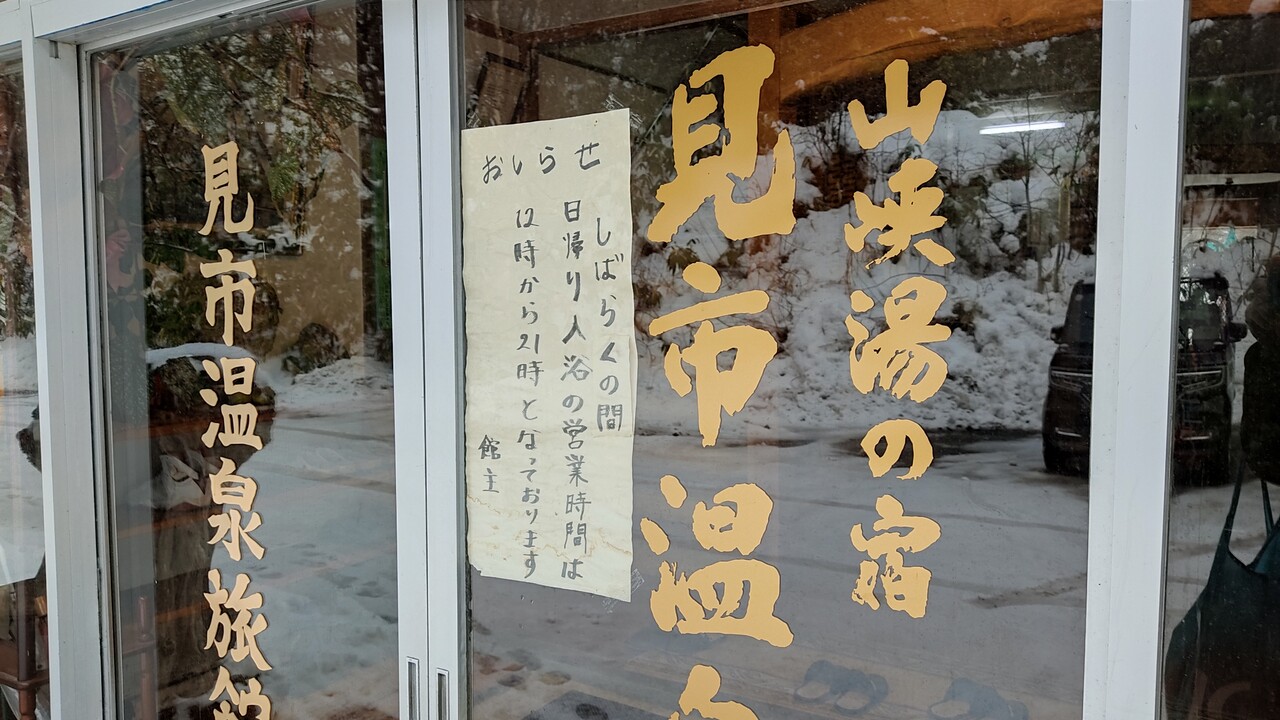 山峡湯の宿
見市温
おしらせ
しばらくの間
日帰り入浴の営業時間は
12時から21時となっております
館主
見市温泉旅館